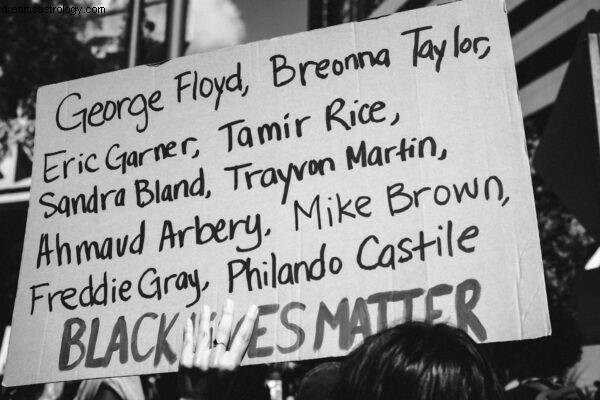 dreamsastrology.com
George Floyd, Breonna Taylor,
Eric Garner, Tamir Rice,
Sandra Bland, Trayvon Martin,
Ahmaud Arbery, Mike Brown,
Freddie Gray, Philando Castile
BLACK LIVES MATTER